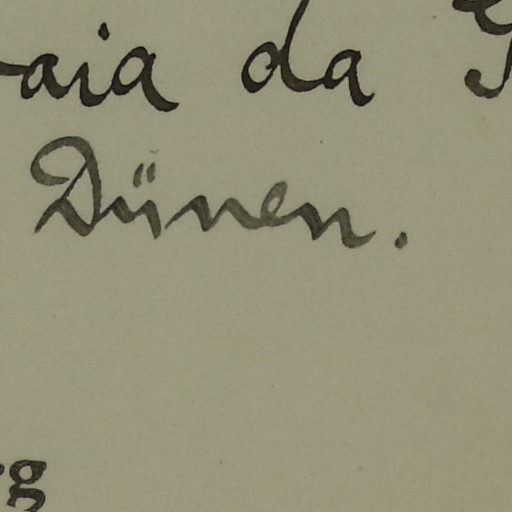 aia da
Dünen.
g